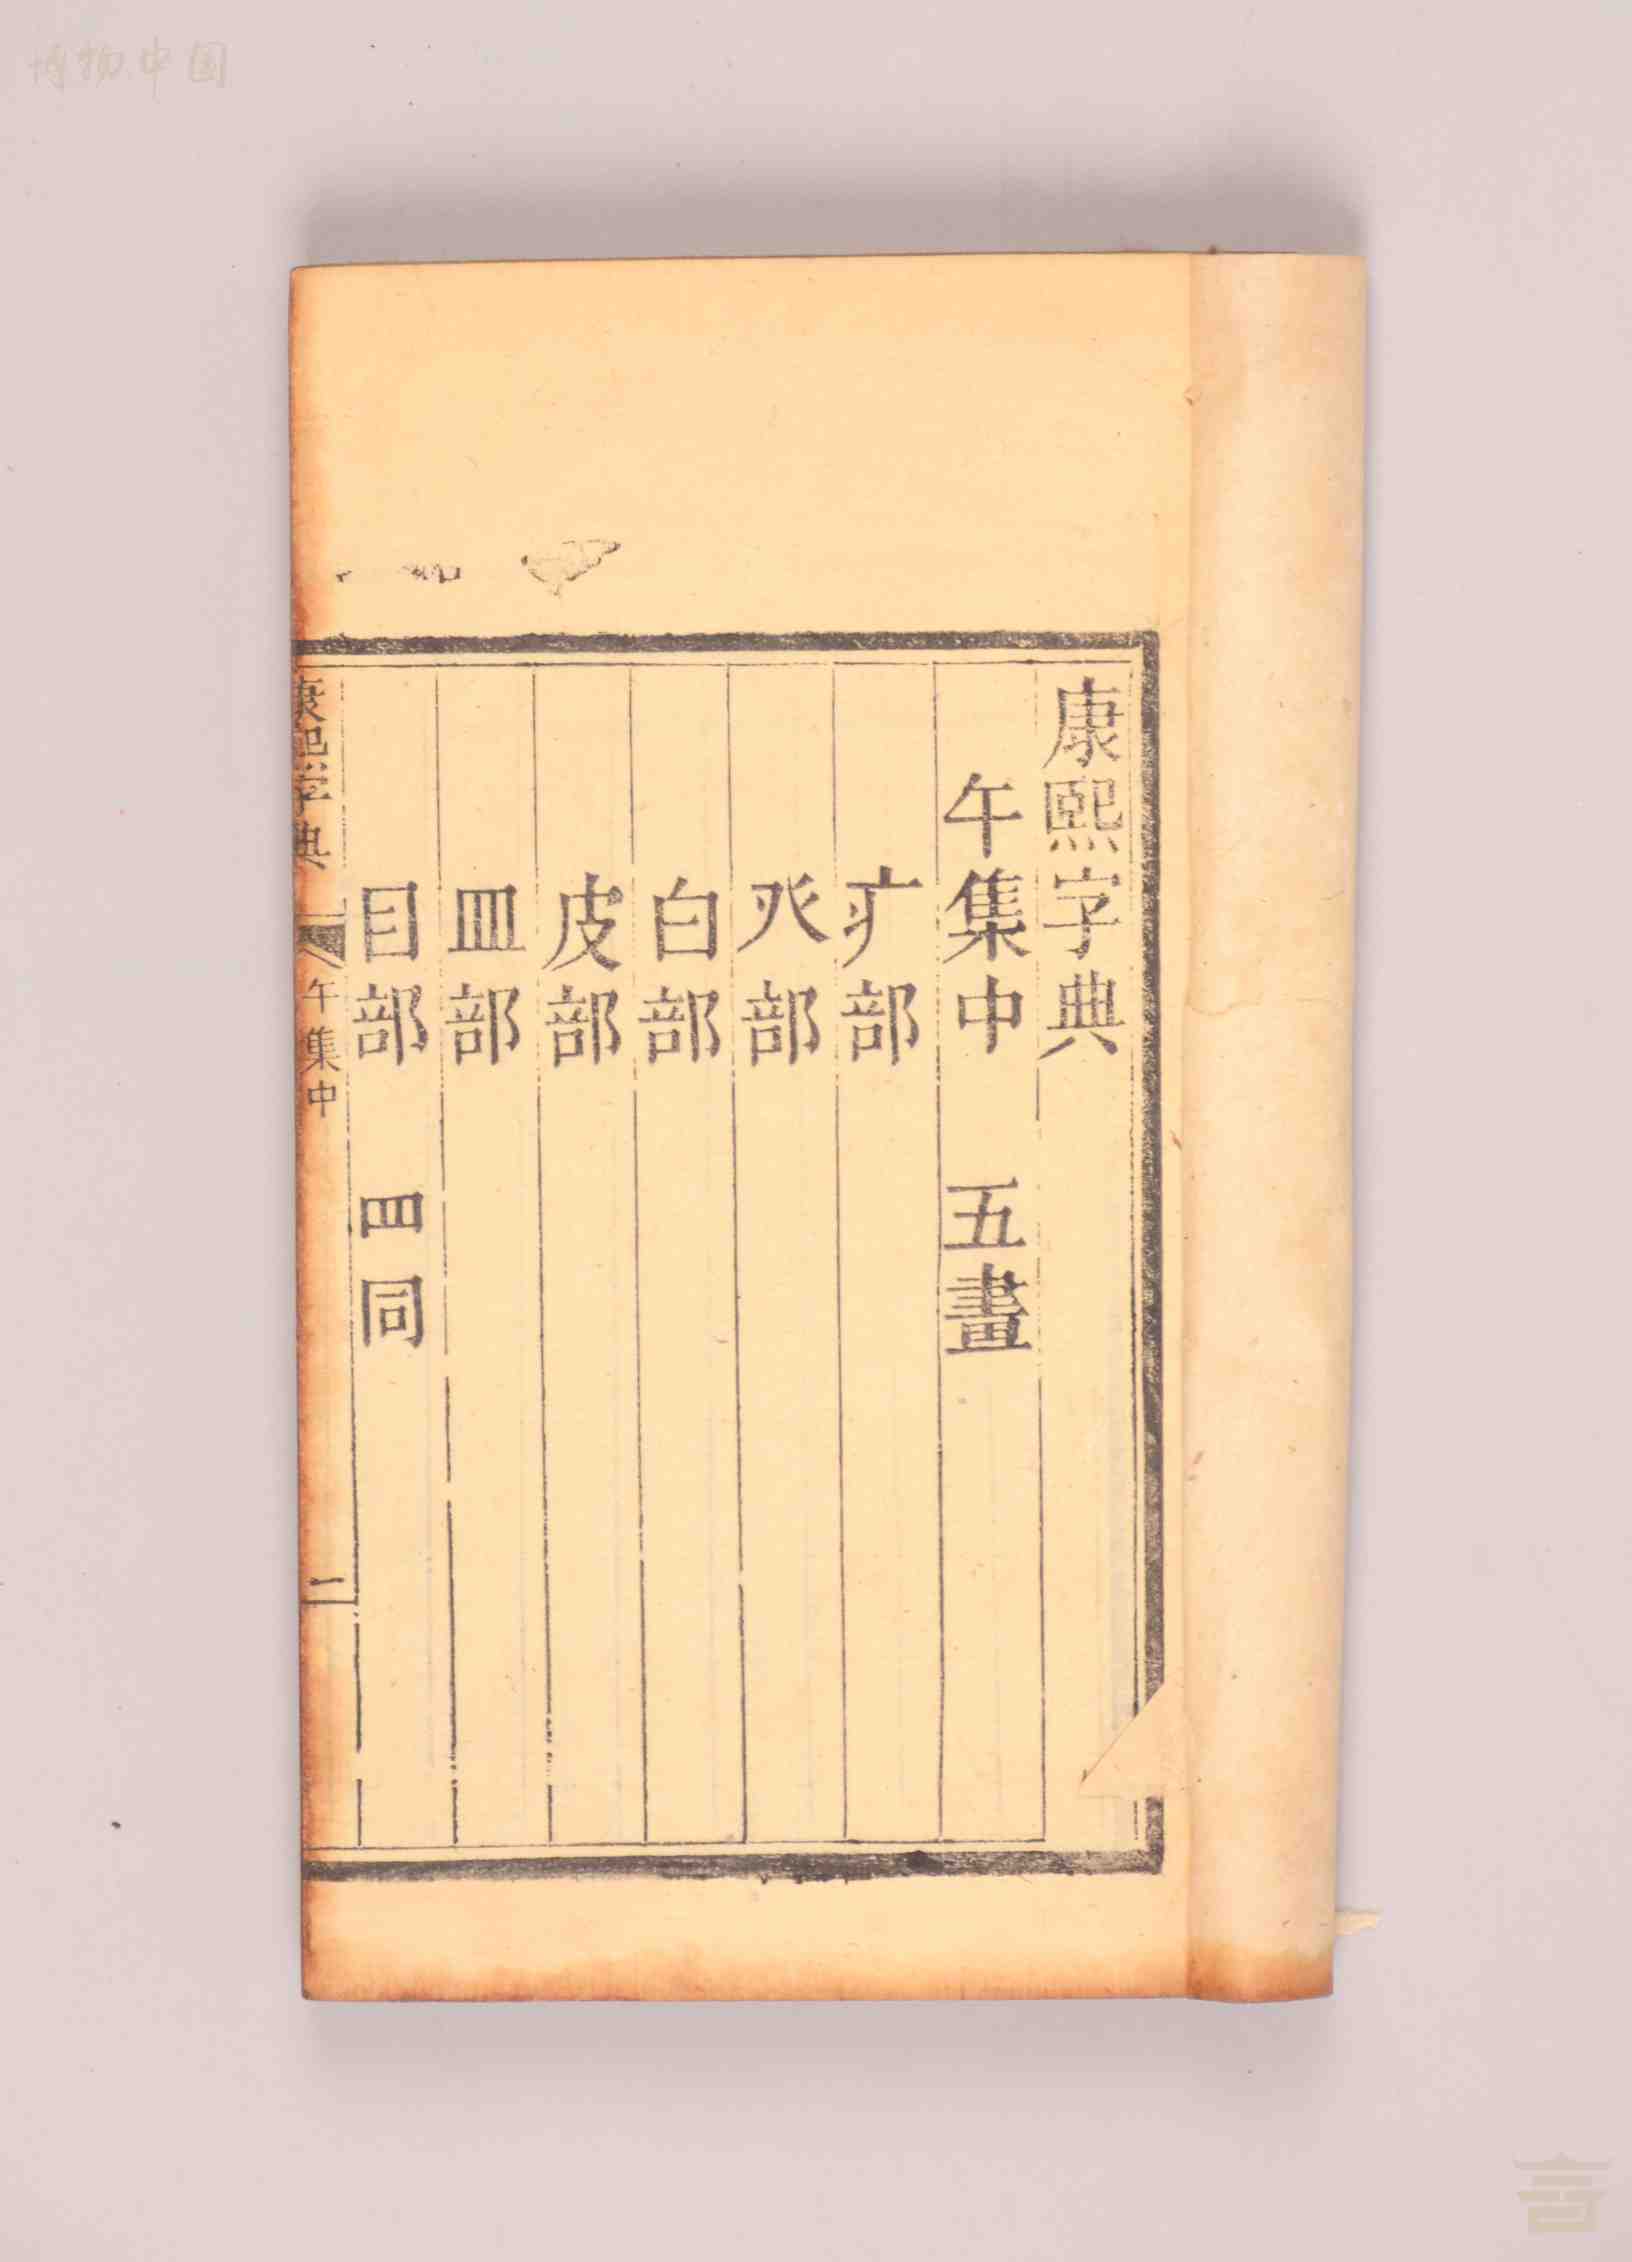 博物中国
康熙字典
午集中 五畫
疒部
癶部
白部
皮部
皿部
目部 罒同
康熙字典 午集中 一